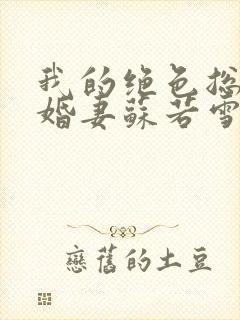 我的绝色总
婚妻苏若雪
戀舊的土豆